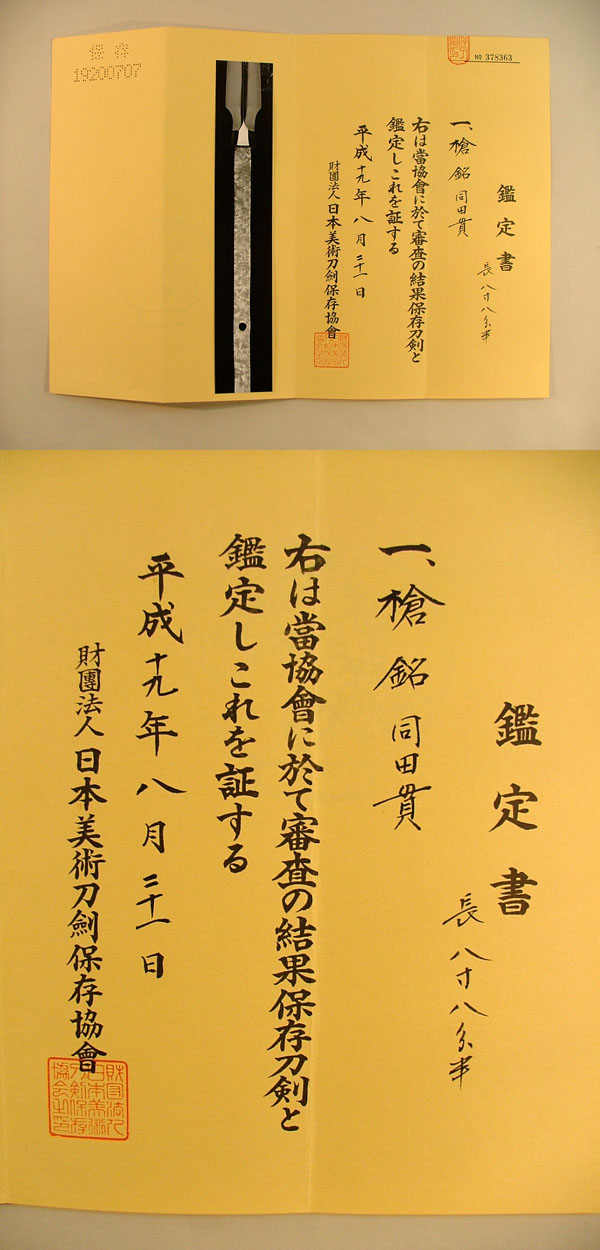 保存
19200707
No 378363
鑑定書
長八寸八分半
一、槍 銘 同田貫
右は當協會に於て審査の結果保存刀剣と
鑑定しこれを証する
平成十九年八月二十一日
財團法人日本美術刀劍保存協會
鑑定書
長八寸八分半
一、槍 銘 同田貫
右は當協會に於て審査の結果保存刀剣と
鑑定しこれを証する
平成十九年八月二十一日
財團法人日本美術刀劍保存協會